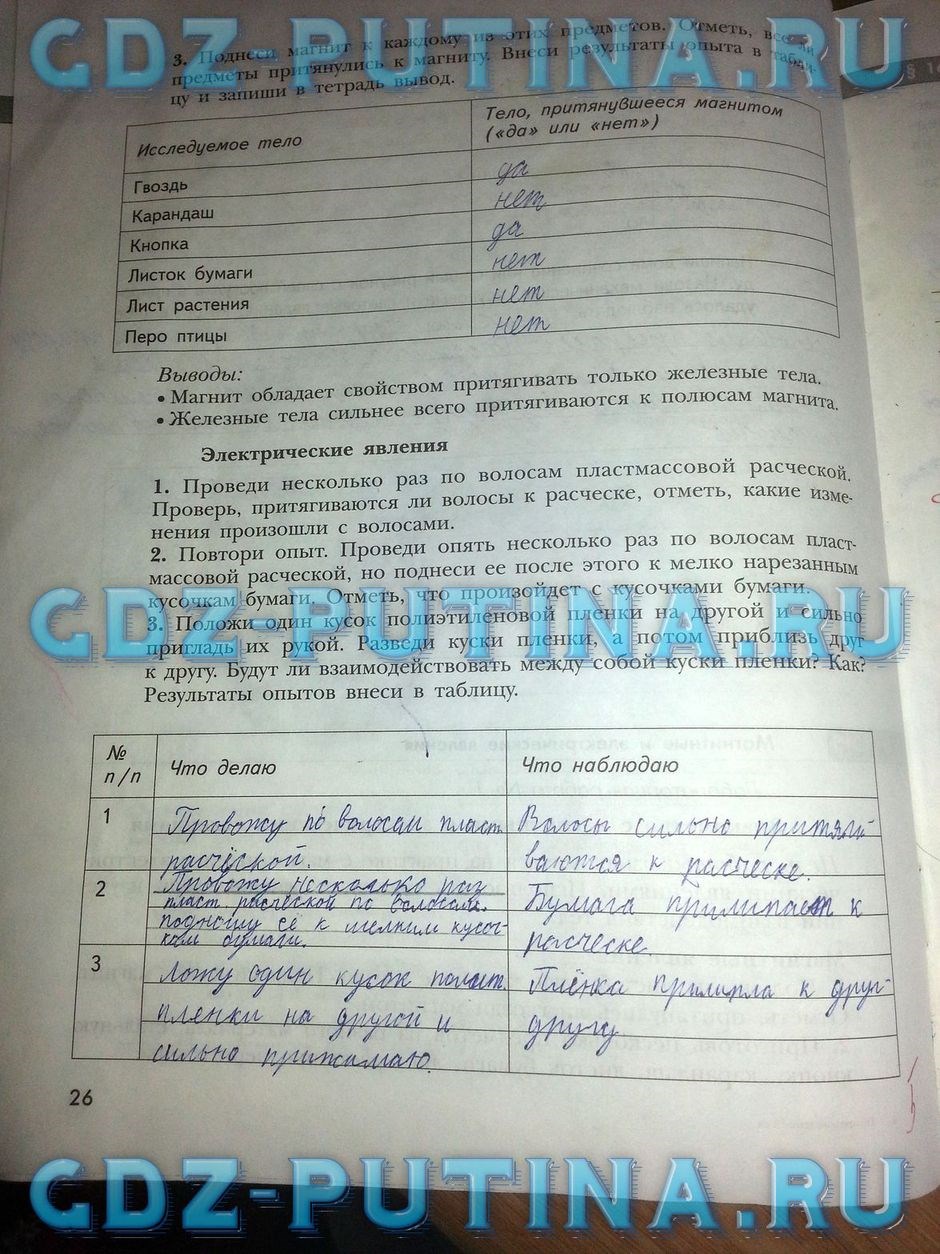 GDZ-PUTINA.RU
3. Поднеси магнит к каждому из этих предметов. Отметь, все ли
предметы притянулись к магниту. Внеси результаты опыта в табли-
цу и запиши в тетрадь вывод.
Исследуемое тело
Тело, притянувшееся магнитом
(«да» или «нет»)
Гвоздь
да
Карандаш
нет
Кнопка
да
Листок бумаги
нет
Лист растения
нет
Перо птицы
нет
Выводы:
• Магнит обладает свойством притягивать только железные тела.
• Железные тела сильнее всего притягиваются к полюсам магнита.
Электрические явления
1. Проведи несколько раз по волосам пластмассовой расческой.
Проверь, притягиваются ли волосы к расческе, отметь, какие изме-
нения произошли с волосами.
2. Повтори опыт. Проведи опять несколько раз по волосам пласт-
массовой расческой, но поднеси ее после этого к мелко нарезанным
кусочкам бумаги. Отметь, что произойдет с кусочками бумаги.
GDZ-PUTINA.RU
3. Положи один кусок полиэтиленовой пленки на другой и сильно
пригладь их рукой. Разведи куски пленки, а потом приблизь друг
к другу. Будут ли взаимодействовать между собой куски пленки? Как?
Результаты опытов внеси в таблицу.
№
п/п
Что делаю
Что наблюдаю
1
Провожу по волосам пласт.
расчёской.
Волосы сильно притяги
ваются к расческе.
2
Провожу несколько раз
пласт. расческой по волосам.
подношу её к мелким кусоч-
кам бумаги.
Бумага прилипает к
расческе
3
Ложу один кусок полиэт.
пленки на другой и
сильно прижимаю.
Плёнка прилипла к друг
другу
26
GDZ-PUTINA.RU